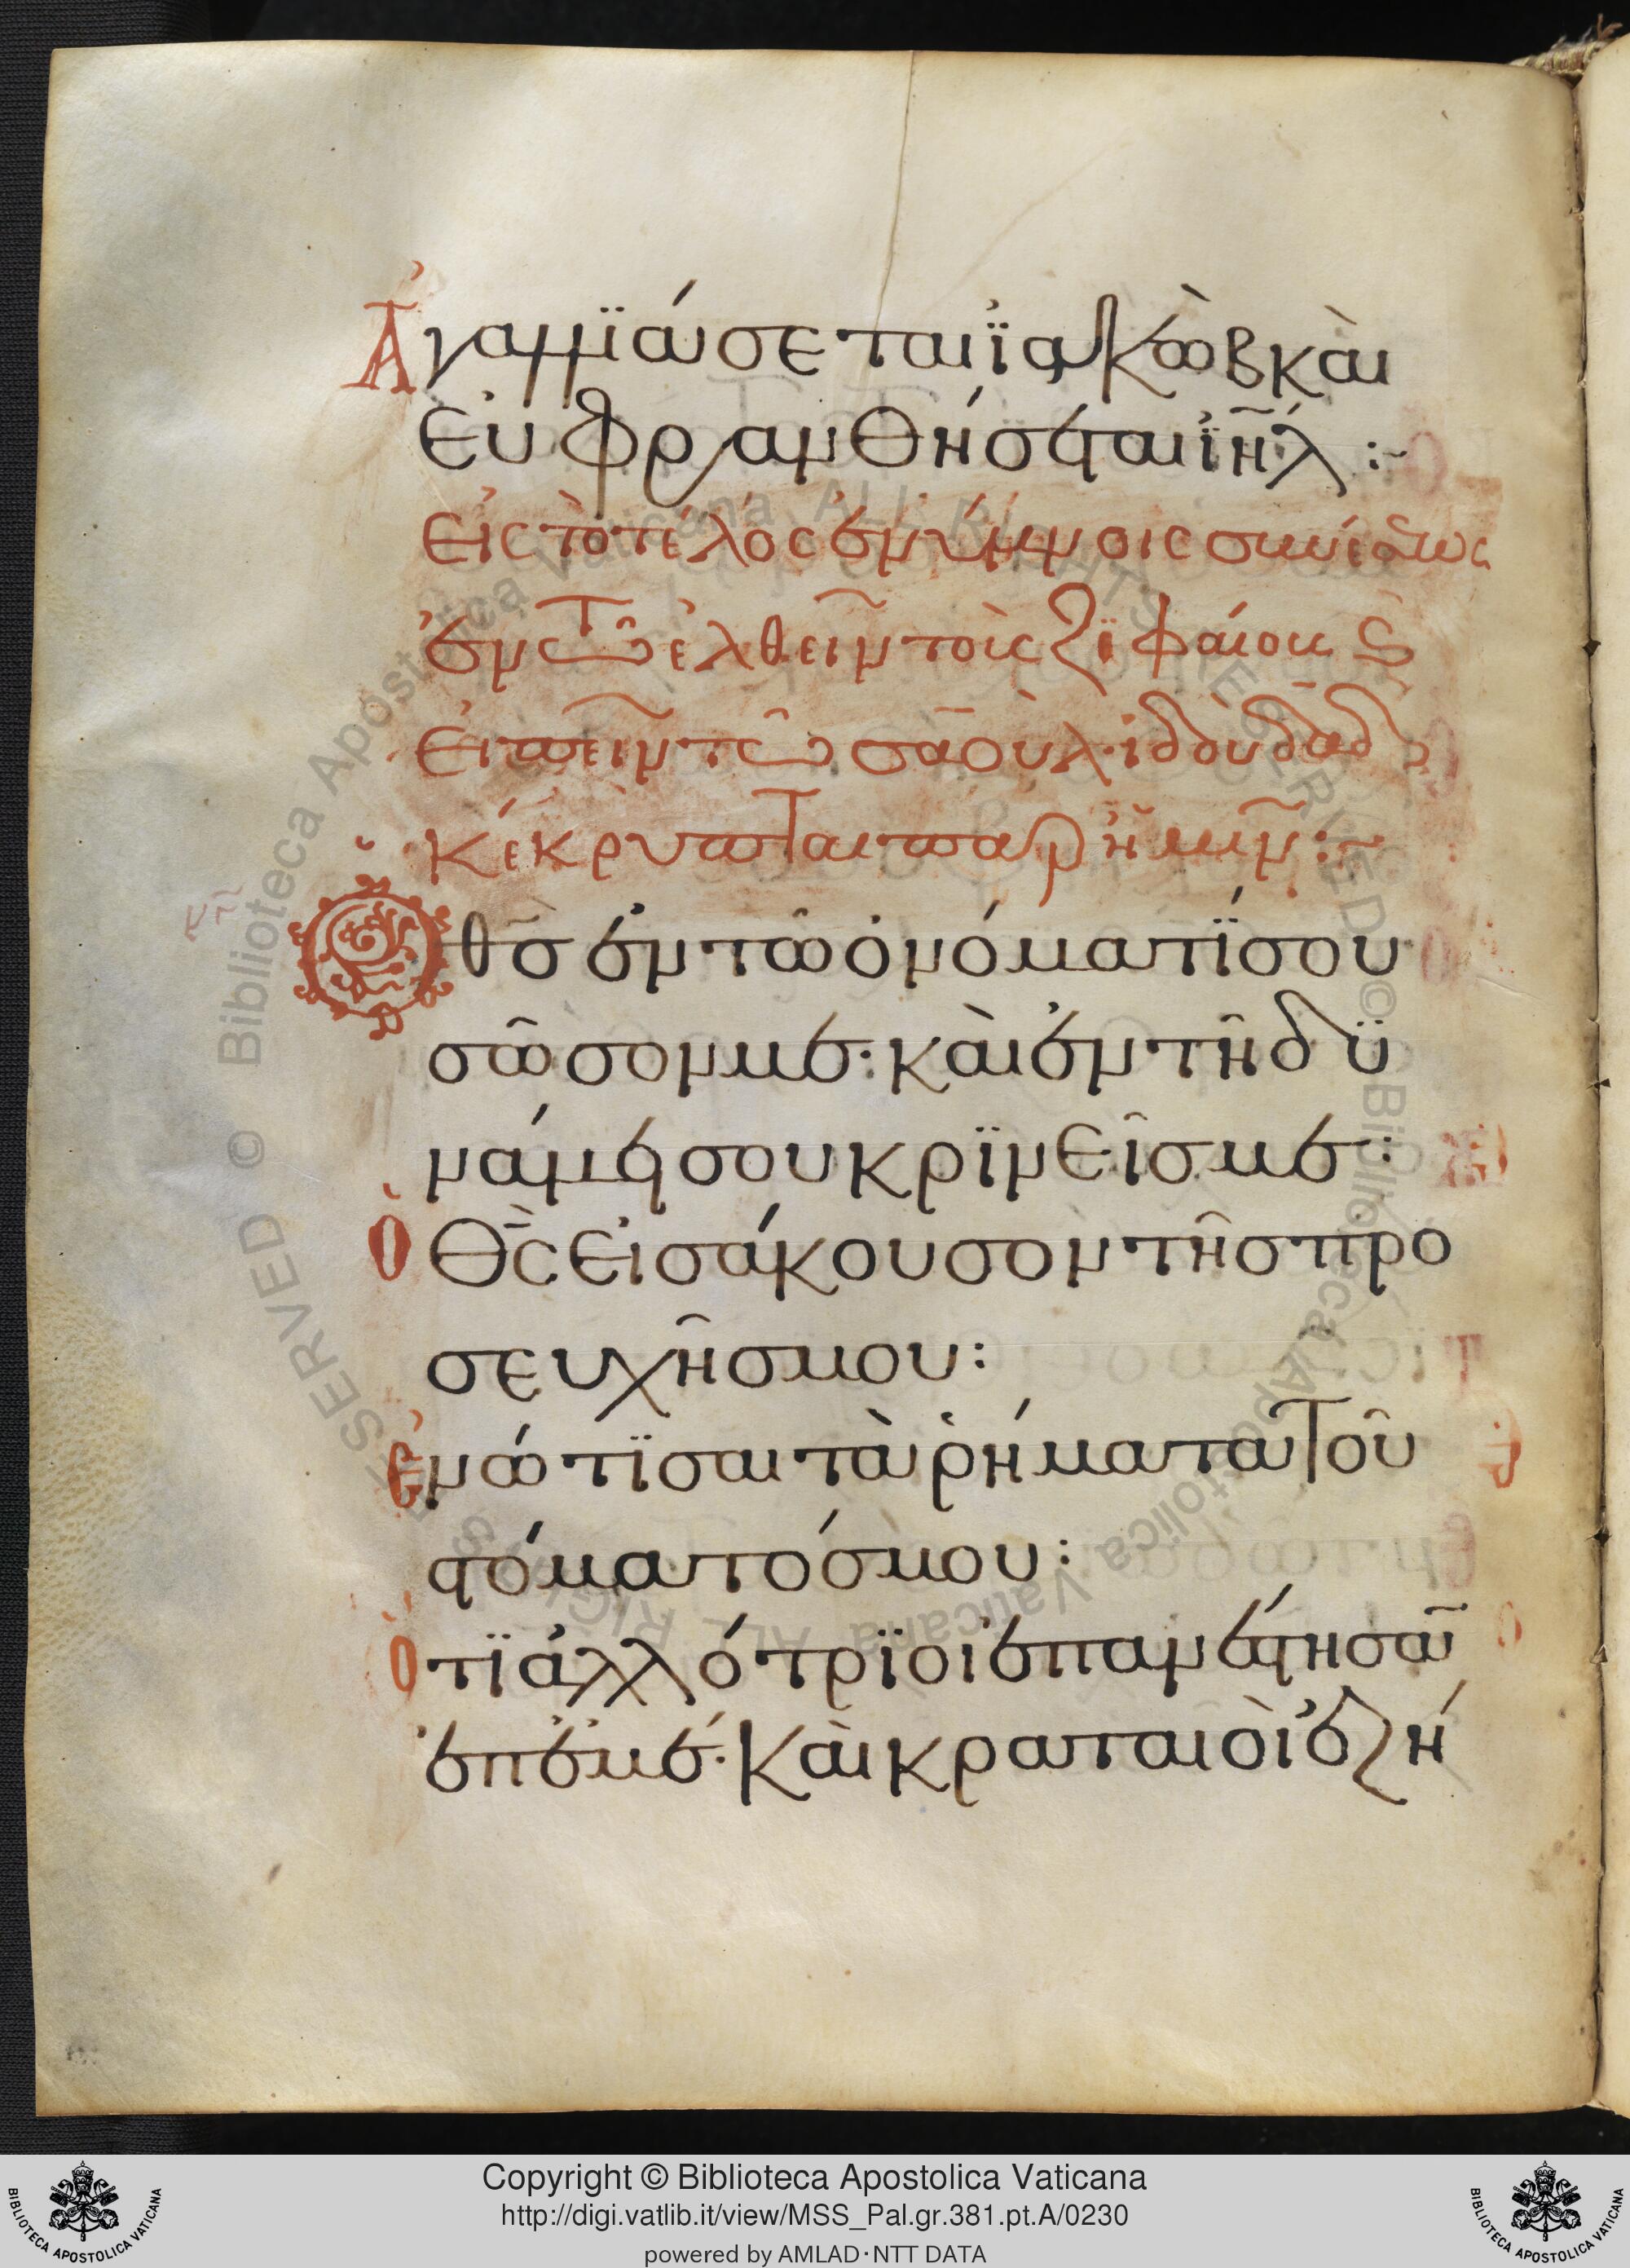 Ἀγαλλϊάσεται ϊακὼβ καὶ
εὐφρανθήσεται ἰη̄λ :~
εἰς τὸ τέλος ἐν ὕμνοις συνέσεως
ἐν τῶ ἐλθεῖν τοὺς ζϊφαίους ϗ
εἰπεῖν τῶ σαοὺλ· ἰδοὺ δᾱδ
κέκρυπται παρ ἡμῖν :~
Ὁ θσ̄ ἐν τῶ ὀνόματϊ σου
σῶσον με· καὶ ἐν τῆ δϋ
νάμει σου κρϊνεῖσ με :
Ὁ θς̄ εἰσάκουσον τῆσ προ
σευχῆσ μου :
Ἐνώτϊσαι τὰ ῥήματα τοῦ
στόματόσ μου :
Ὅτϊ ἀλλότρϊοι ἐπανέστησαν
ἐπ ἐμέ· καὶ κραταιοὶ ἐζή
Copyright © Biblioteca Apostolica Vaticana
http://digi.vatlib.it/view/MSS_Pal.gr.381.pt.A/0230
powered by AMLAD·NTT DATA
BIBLIOTECA APOSTOLICA VATICANA
BIBLIOTECA APOSTOLICA VATICANA